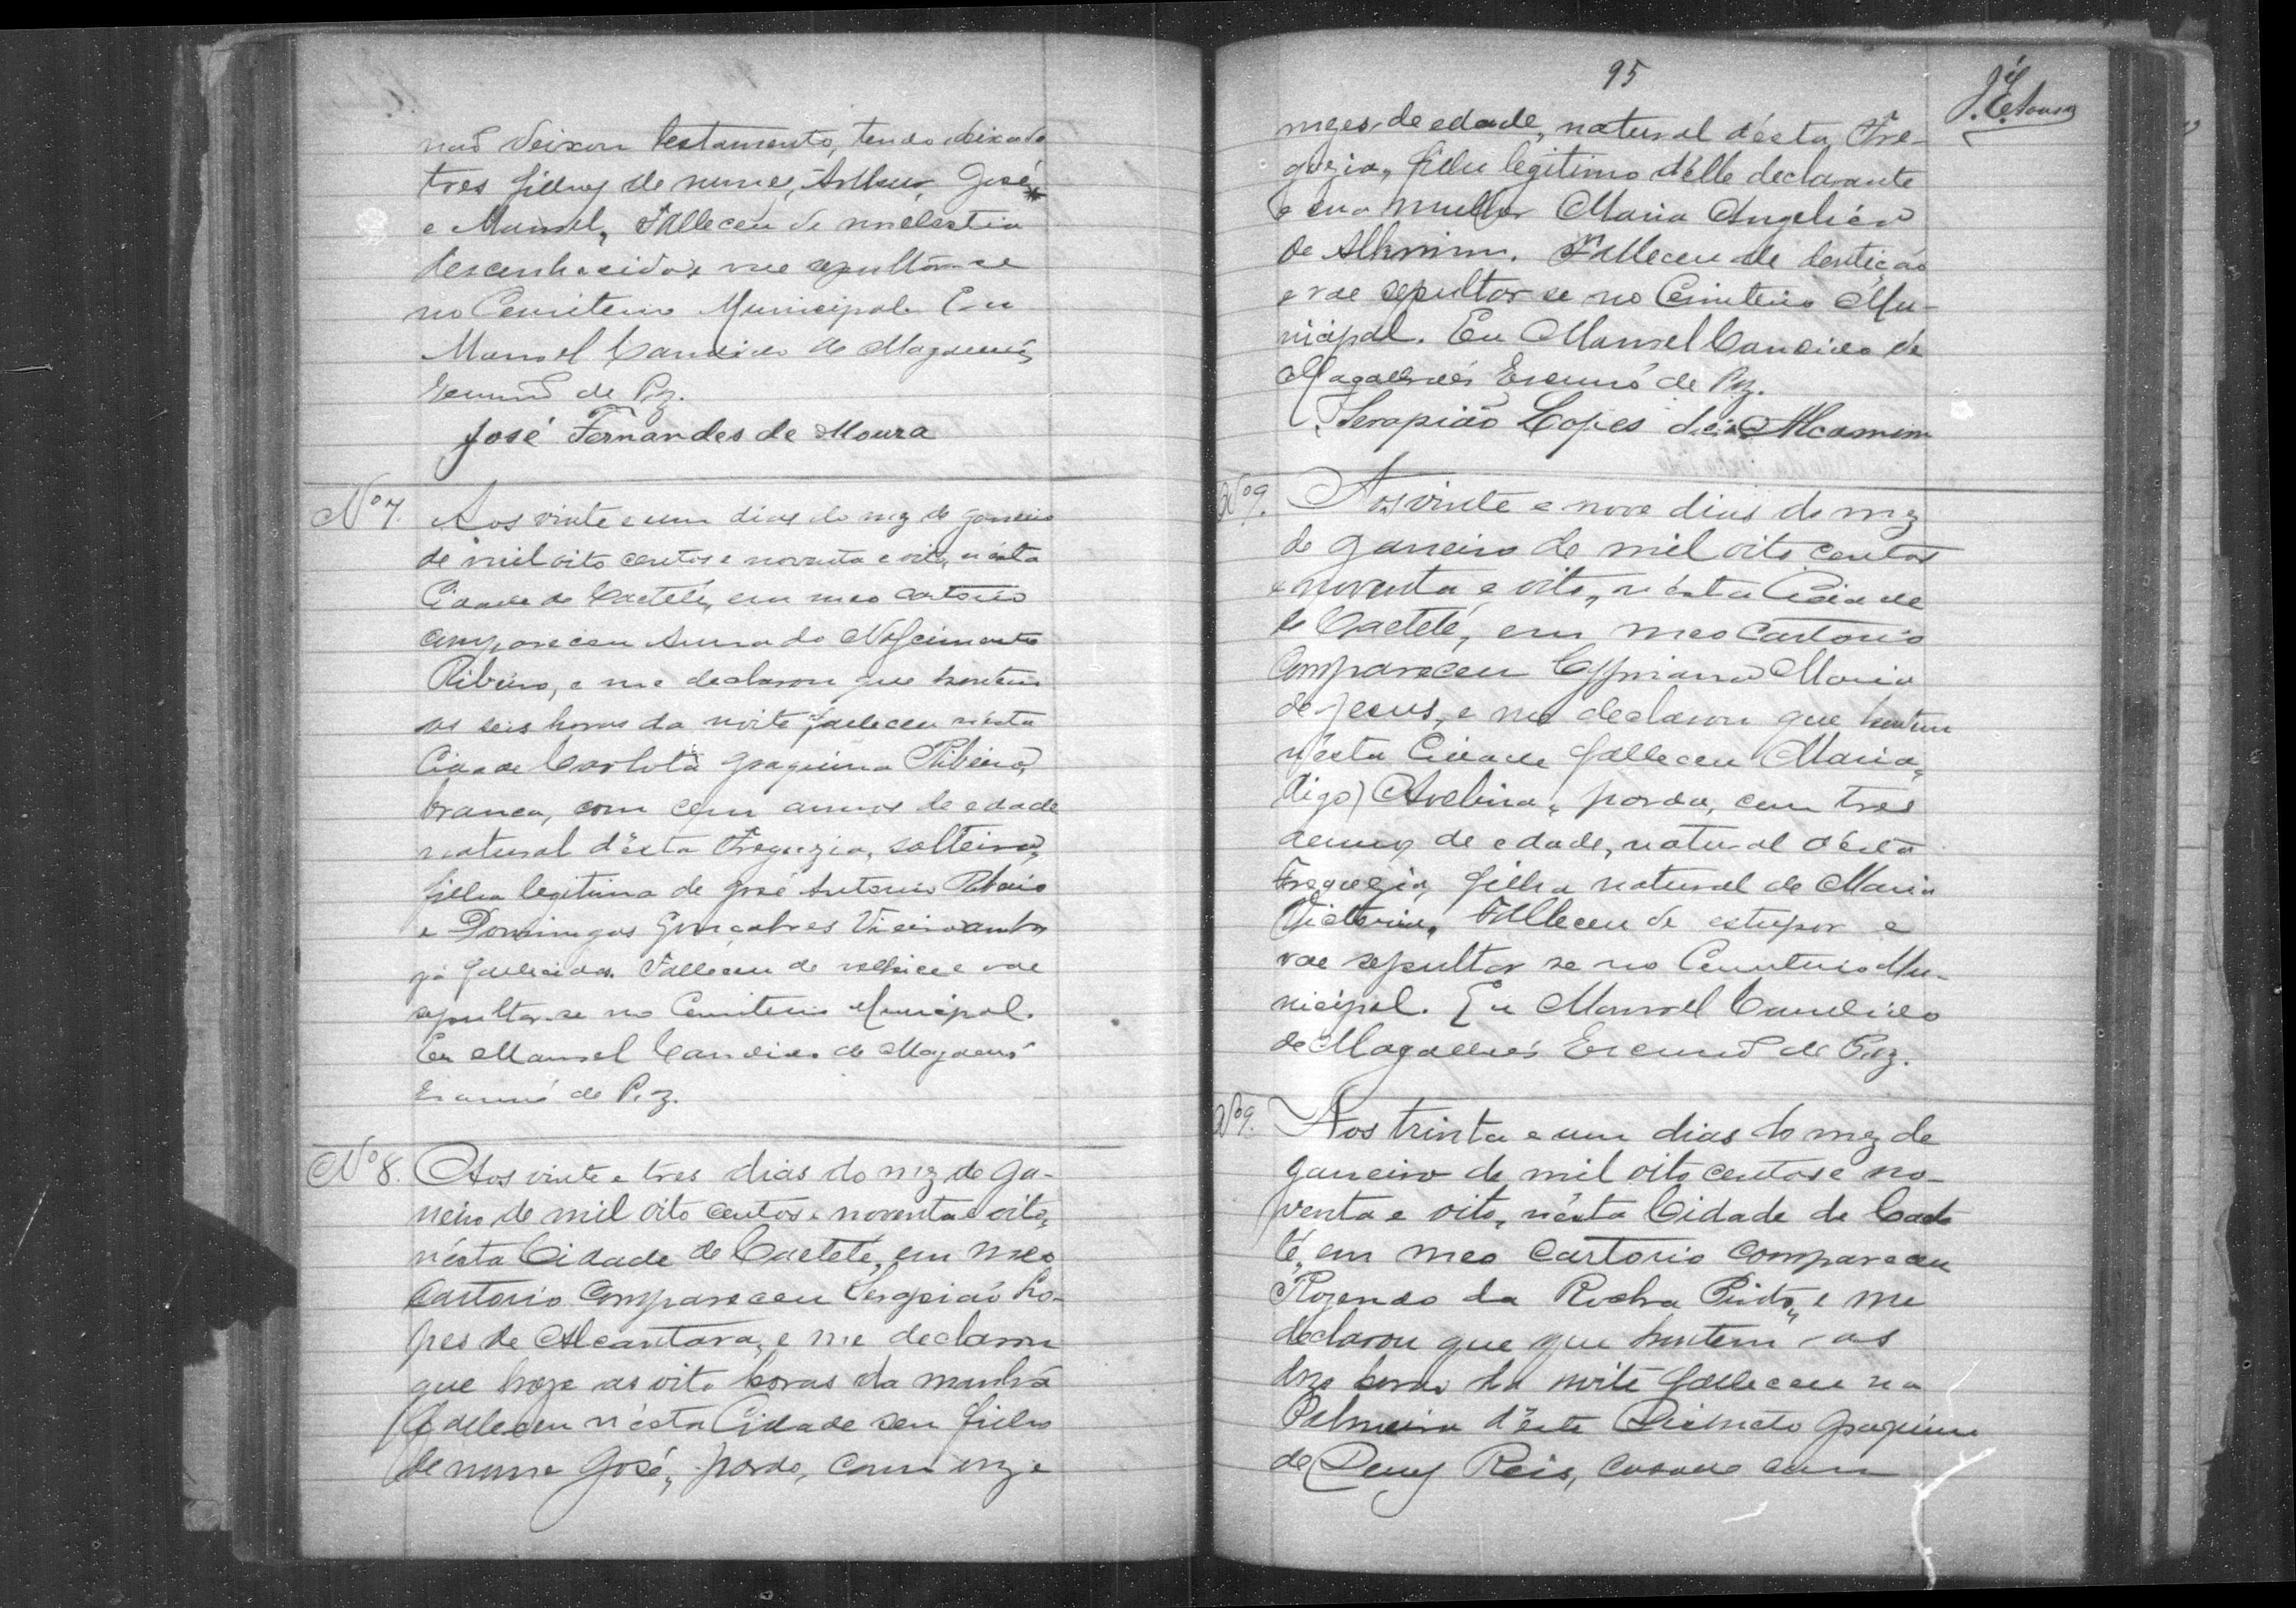 não deixou testamento, tendo deixado
tres filhos de nome, Arthur, José
e Manoel, Falleceu de molestia
desconhecida e vae sepultar-se
no Cemiterio Municipal. Eu
Manoel Candido de Magalhães
Escrivão de Paz.
José Fernandes de Moura
Nº 7. Aos vinte e um dias do mez de Janeiro
de mil oito centos e noventa e oito, n'esta
Cidade de Caetété, em meo cartorio
compareceu Anna do Nascimento
Ribeiro, e me declarou que hontem
as seis horas da noite falleceu n'esta
Cidade Carlota Joaquina Ribeiro,
branca, com cem annos de edade
natural d'esta Freguezia, solteira,
filha legitima de José Antonio Ribeiro
e Domingas Gonçalves Vieira ambos
já fallecidos. Falleceu de velhice e vae
sepultar-se no Cemiterio Municipal.
Eu Manoel Candido de Magalhães
Escrivão de Paz.
Nº 8. Aos vinte e tres dias do mez de Ja-
neiro de mil oito centos e noventa e oito,
n'esta Cidade de Caetété, em meo
cartorio compareceu Serapião Lo-
pes de Alcantara, e me declarou
que hoje as oito horas da manhã
falleceu n'esta Cidade seu filho
de nome José, pardo, com onze
95
mezes de edade, natural d'esta Fre-
guezia, filho legitimo d'elle declarante
e sua mulher Maria Angelica
de Alkmim. Falleceu de dentição
e vae sepultar se no Cemiterio Mu-
nicipal. Eu Manoel Candido de
Magalhães Escrivão de Paz.
Serapião Lopes de
Nº 9. Aos vinte e nove dias do mez
de Janeiro de mil oito centos
e noventa e oito, n'esta Cidade
de Caetété, em meo Cartorio
compareceu Cypriana Maria
de Jesus, e me declarou que hontem
n'esta Cidade falleceu Maria,
digo) Avelina, parda, com tres
annos de edade, natural d'esta
Freguezia, filha natural de Maria
Victoria, Falleceu de estupor e
vae sepultar se no Cemiterio Mu-
nicipal. Eu Manoel Candido
de Magalhães Escrivão de Paz.
Nº 9. Aos trinta e um dias do mez de
Janeiro de mil oito centos e no-
venta e oito, n'esta Cidade de Caete
té, em meo Cartorio compareceu
Rozendo da Rocha Pinto, e me
declarou que que hontem as
horas da noite falleceu na
Palmeira d'este Districto Joaquina
de Reis, casada com